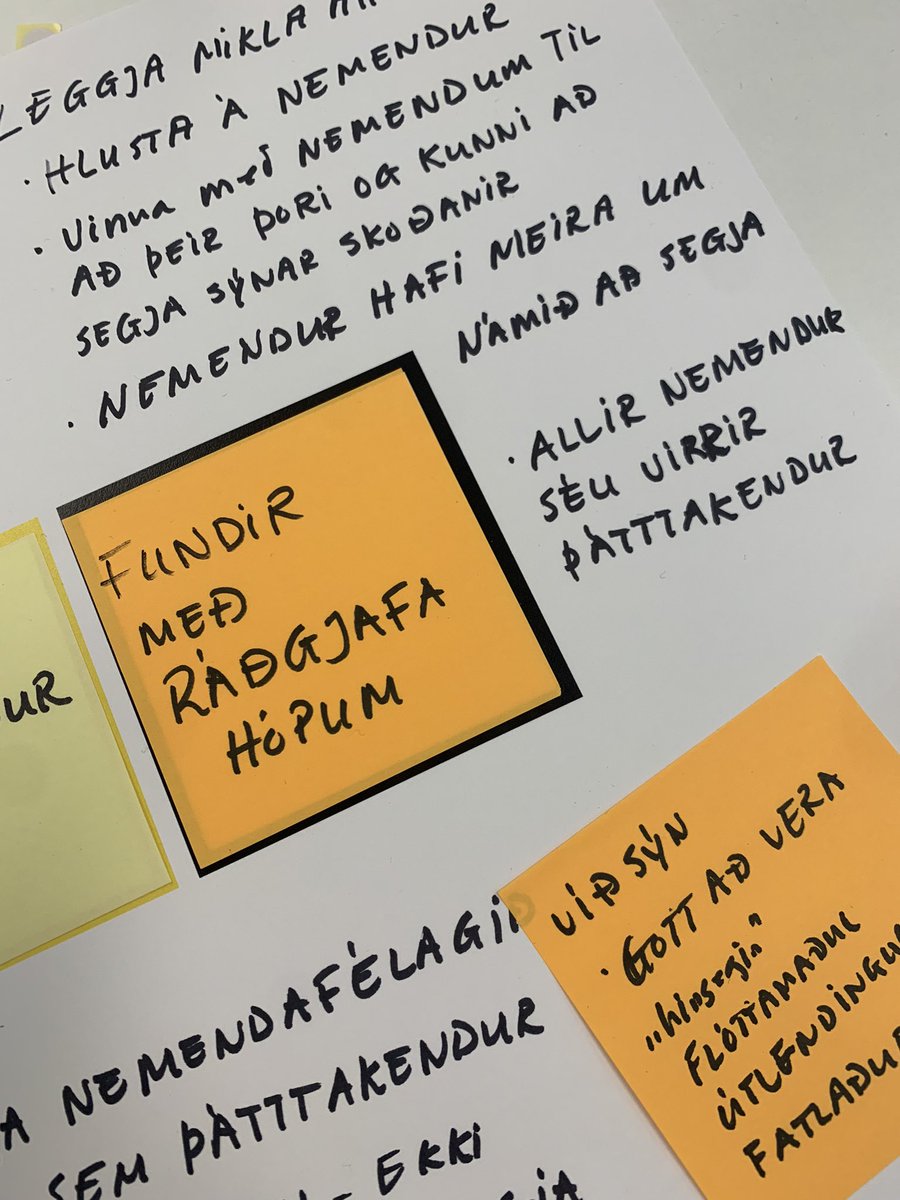 LEGGJA MIKLA
· HLUSTA À NEMENDUR
· Vinna með NEMENDUM TIL
AÐ ÞEIR ÞORI OG KUNNI AÐ
SEGJA SÝNAR SKOÐANIR
· NEMENDUR HAFI MEIRA UM
NÁMIÐ AÐ SEGJA
· ALLIR NEMENDUR
SÉU VIRKIR
ÞÀTTTAKENDUR
FUNDIR
MEÐ
RÁÐGJAFA
HÓPUM
UR
VIÐSÝN
· GOTT AÐ VERA
„hinsegin"
FLÓTTAMAÐUR
ÚTLENDINGUR
FATLAÐUR
A NEMENDAFÉLAGIÐ
SEM ÞÀTTTAKENDUR
- EKKI